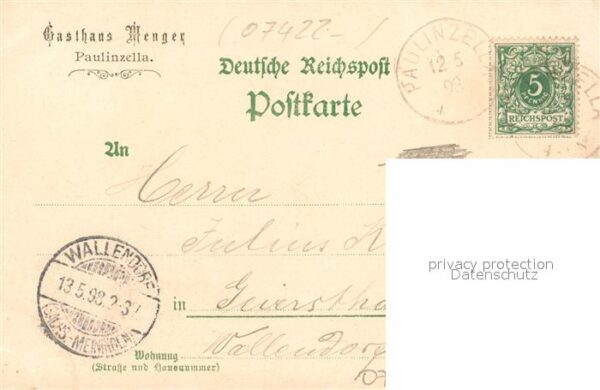 Gasthaus Menger
Paulinzella.
(07422-)
Deutsche Reichspost
Postkarte
PAULINZELLA
12 5
98
5
REICHSPOST
An
Herrn
Julius K
WALLENDORF
13.5.98.2-3
in Geiersth
Wallendorf
Wohnung
(Straße und Hausnummer)
privacy protection
Datenschutz